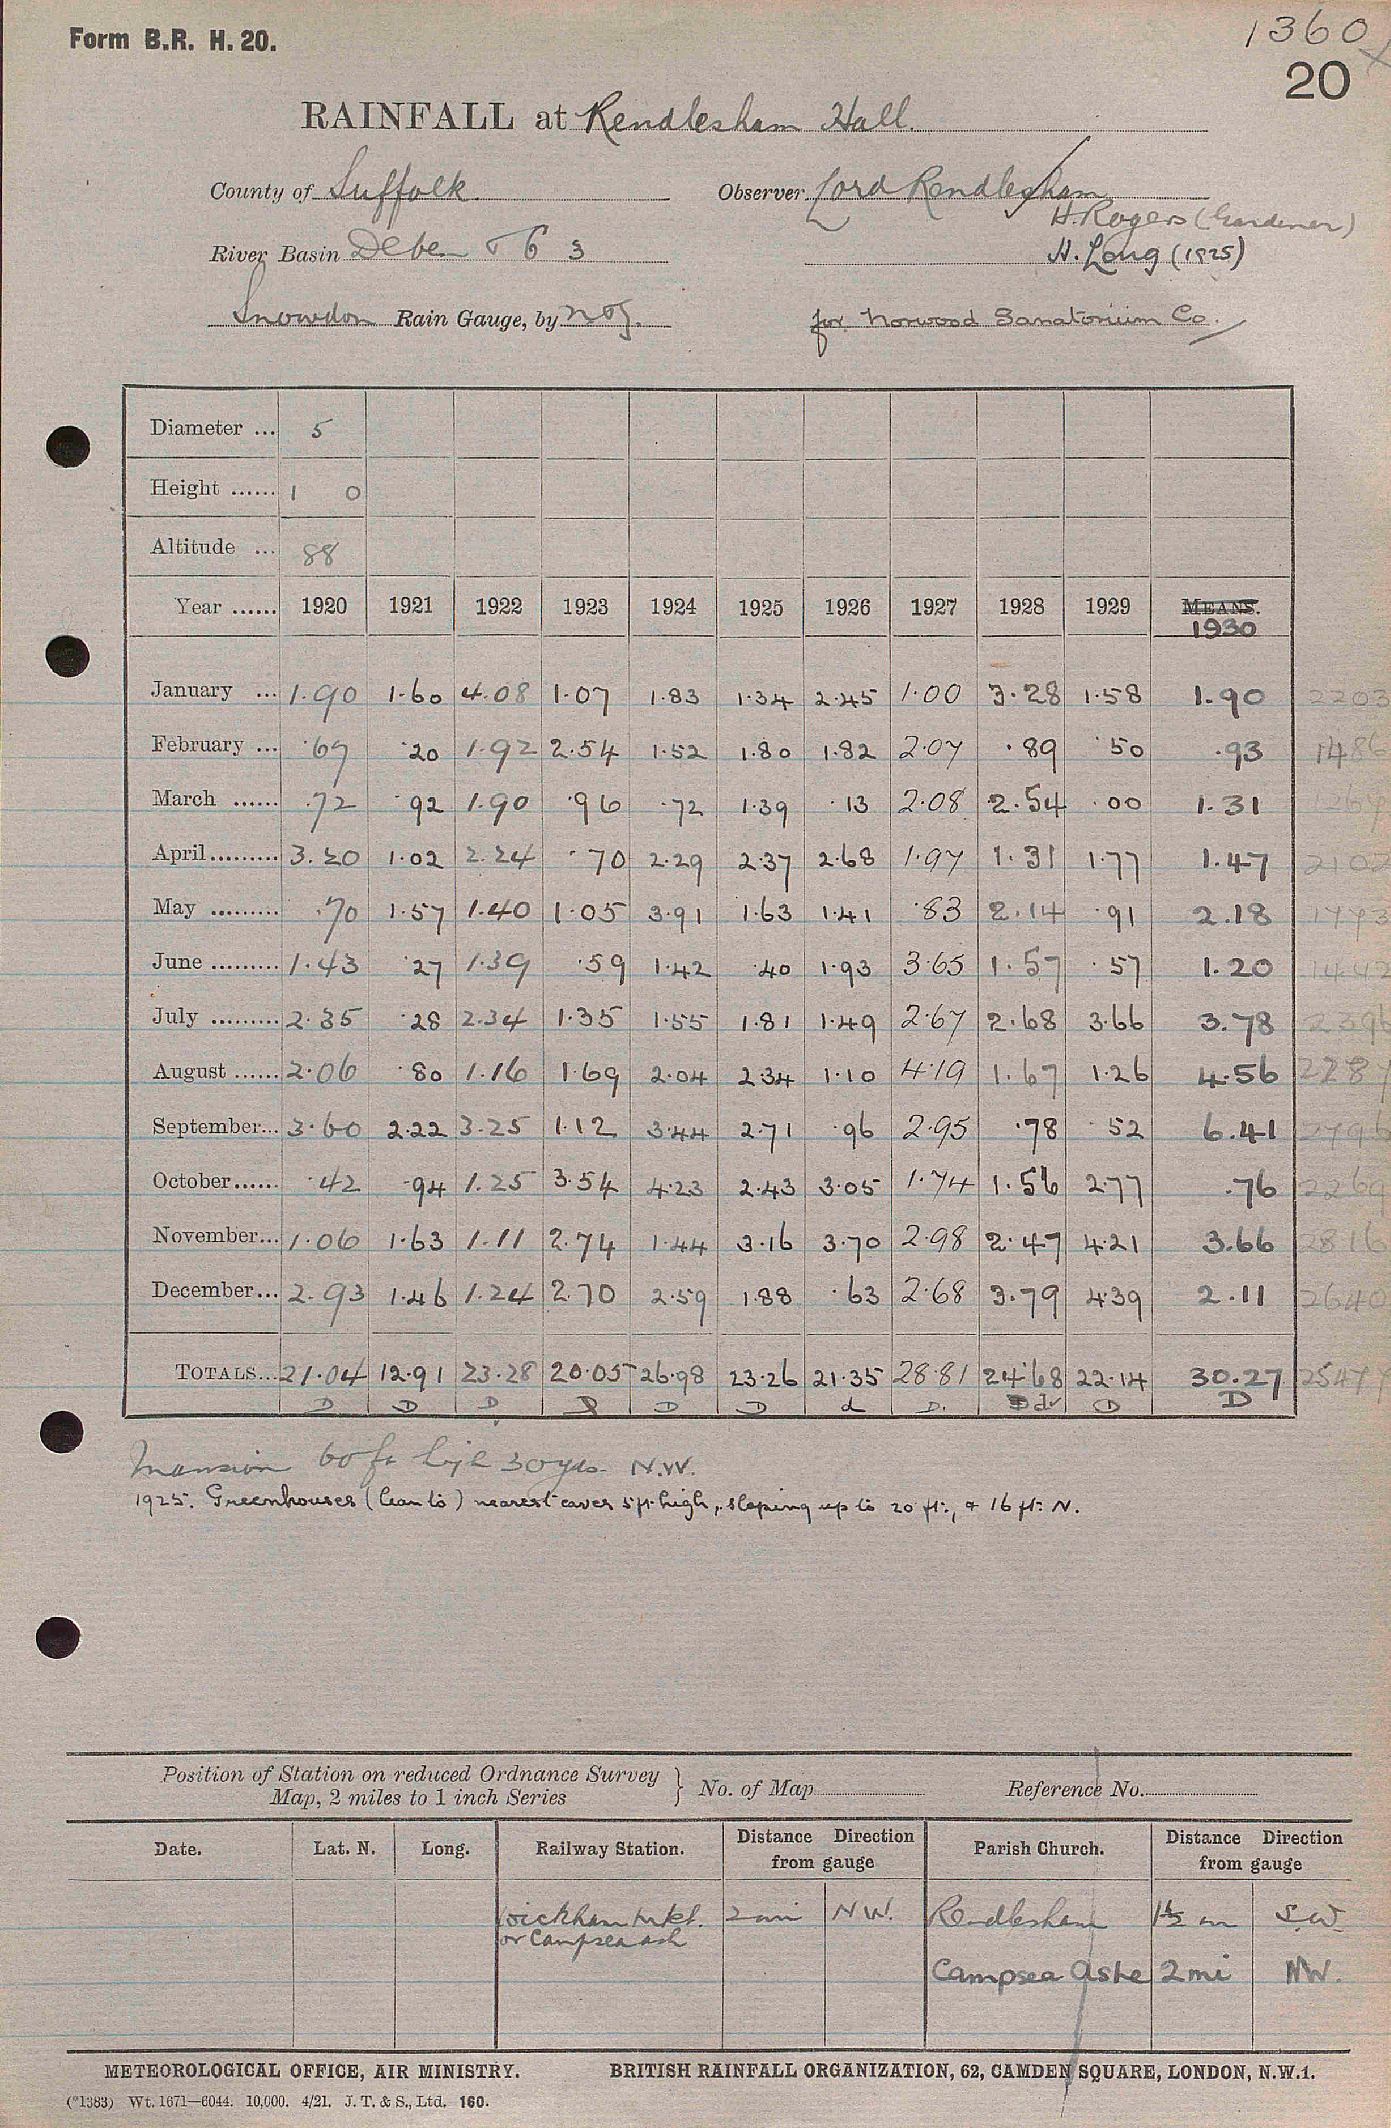 Form B.R. H. 20.
1360
20
RAINFALL at Rendlesham Hall
County of Suffolk Observer Lord Rendlesham
H. Rogers (Gardener)
River Basin Deben 6 3 H. Long (1925)
Snowdon Rain Gauge, by for Norwood Sanatorium Co.
Diameter ... 5
Height ...... 1 0
Altitude ... 88
Year ...... 1920 1921 1922 1923 1924 1925 1926 1927 1928 1929 MEANS.
1930
January ... 1.90 1.60 4.08 1.07 1.83 1.34 2.45 1.00 3.28 1.58 1.90 2203
February ... .67 .20 1.92 2.54 1.52 1.80 1.82 2.07 .89 .50 .93 1486
March ...... .72 .92 1.90 .96 .72 1.39 .13 2.08 2.54 .00 1.31 1267
April ......... 3.20 1.02 2.24 .70 2.29 2.37 2.68 1.97 1.31 1.77 1.47 2102
May ......... .70 1.57 1.40 1.05 3.91 1.63 1.41 .83 2.14 .91 2.18 1773
June ......... 1.43 .27 1.39 .59 1.42 .40 1.93 3.65 1.57 .57 1.20 1442
July ......... 2.35 .28 2.34 1.35 1.55 1.81 1.49 2.67 2.68 3.66 3.78 2396
August ...... 2.06 .80 1.16 1.69 2.04 2.34 1.10 4.19 1.67 1.26 4.56 2287
September... 3.60 2.22 3.25 1.12 3.44 2.71 .96 2.95 .78 .52 6.41 2796
October...... .42 .94 1.25 3.54 4.23 2.43 3.05 1.74 1.56 2.77 .76 2269
November... 1.06 1.63 1.11 2.74 1.44 3.16 3.70 2.98 2.47 4.21 3.66 2816
December... 2.93 1.46 1.24 2.70 2.59 1.88 .63 2.68 3.79 4.39 2.11 2640
TOTALS... 21.04 12.91 23.28 20.05 26.98 23.26 21.35 28.81 24.68 22.14 30.27 25477
D D D D D D d D. dr D D
Mansion 60 ft high 30 yds N.W.
1925. Greenhouses (lean to) nearest eaves 5 ft. high, sloping up to 20 ft., & 16 ft. N.
Position of Station on reduced Ordnance Survey
Map, 2 miles to 1 inch Series } No. of Map Reference No.
Date. Lat. N. Long. Railway Station. Distance Direction from gauge Parish Church. Distance Direction from gauge
Wickham Mkt. 2 mi N W. Rendlesham 1½ m S.W.
or Campsea ash
Campsea Ashe 2 mi NW.
METEOROLOGICAL OFFICE, AIR MINISTRY. BRITISH RAINFALL ORGANIZATION, 62, CAMDEN SQUARE, LONDON, N.W.1.
(*1383) Wt. 1671—6044. 10,000. 4/21. J. T. & S., Ltd. 160.